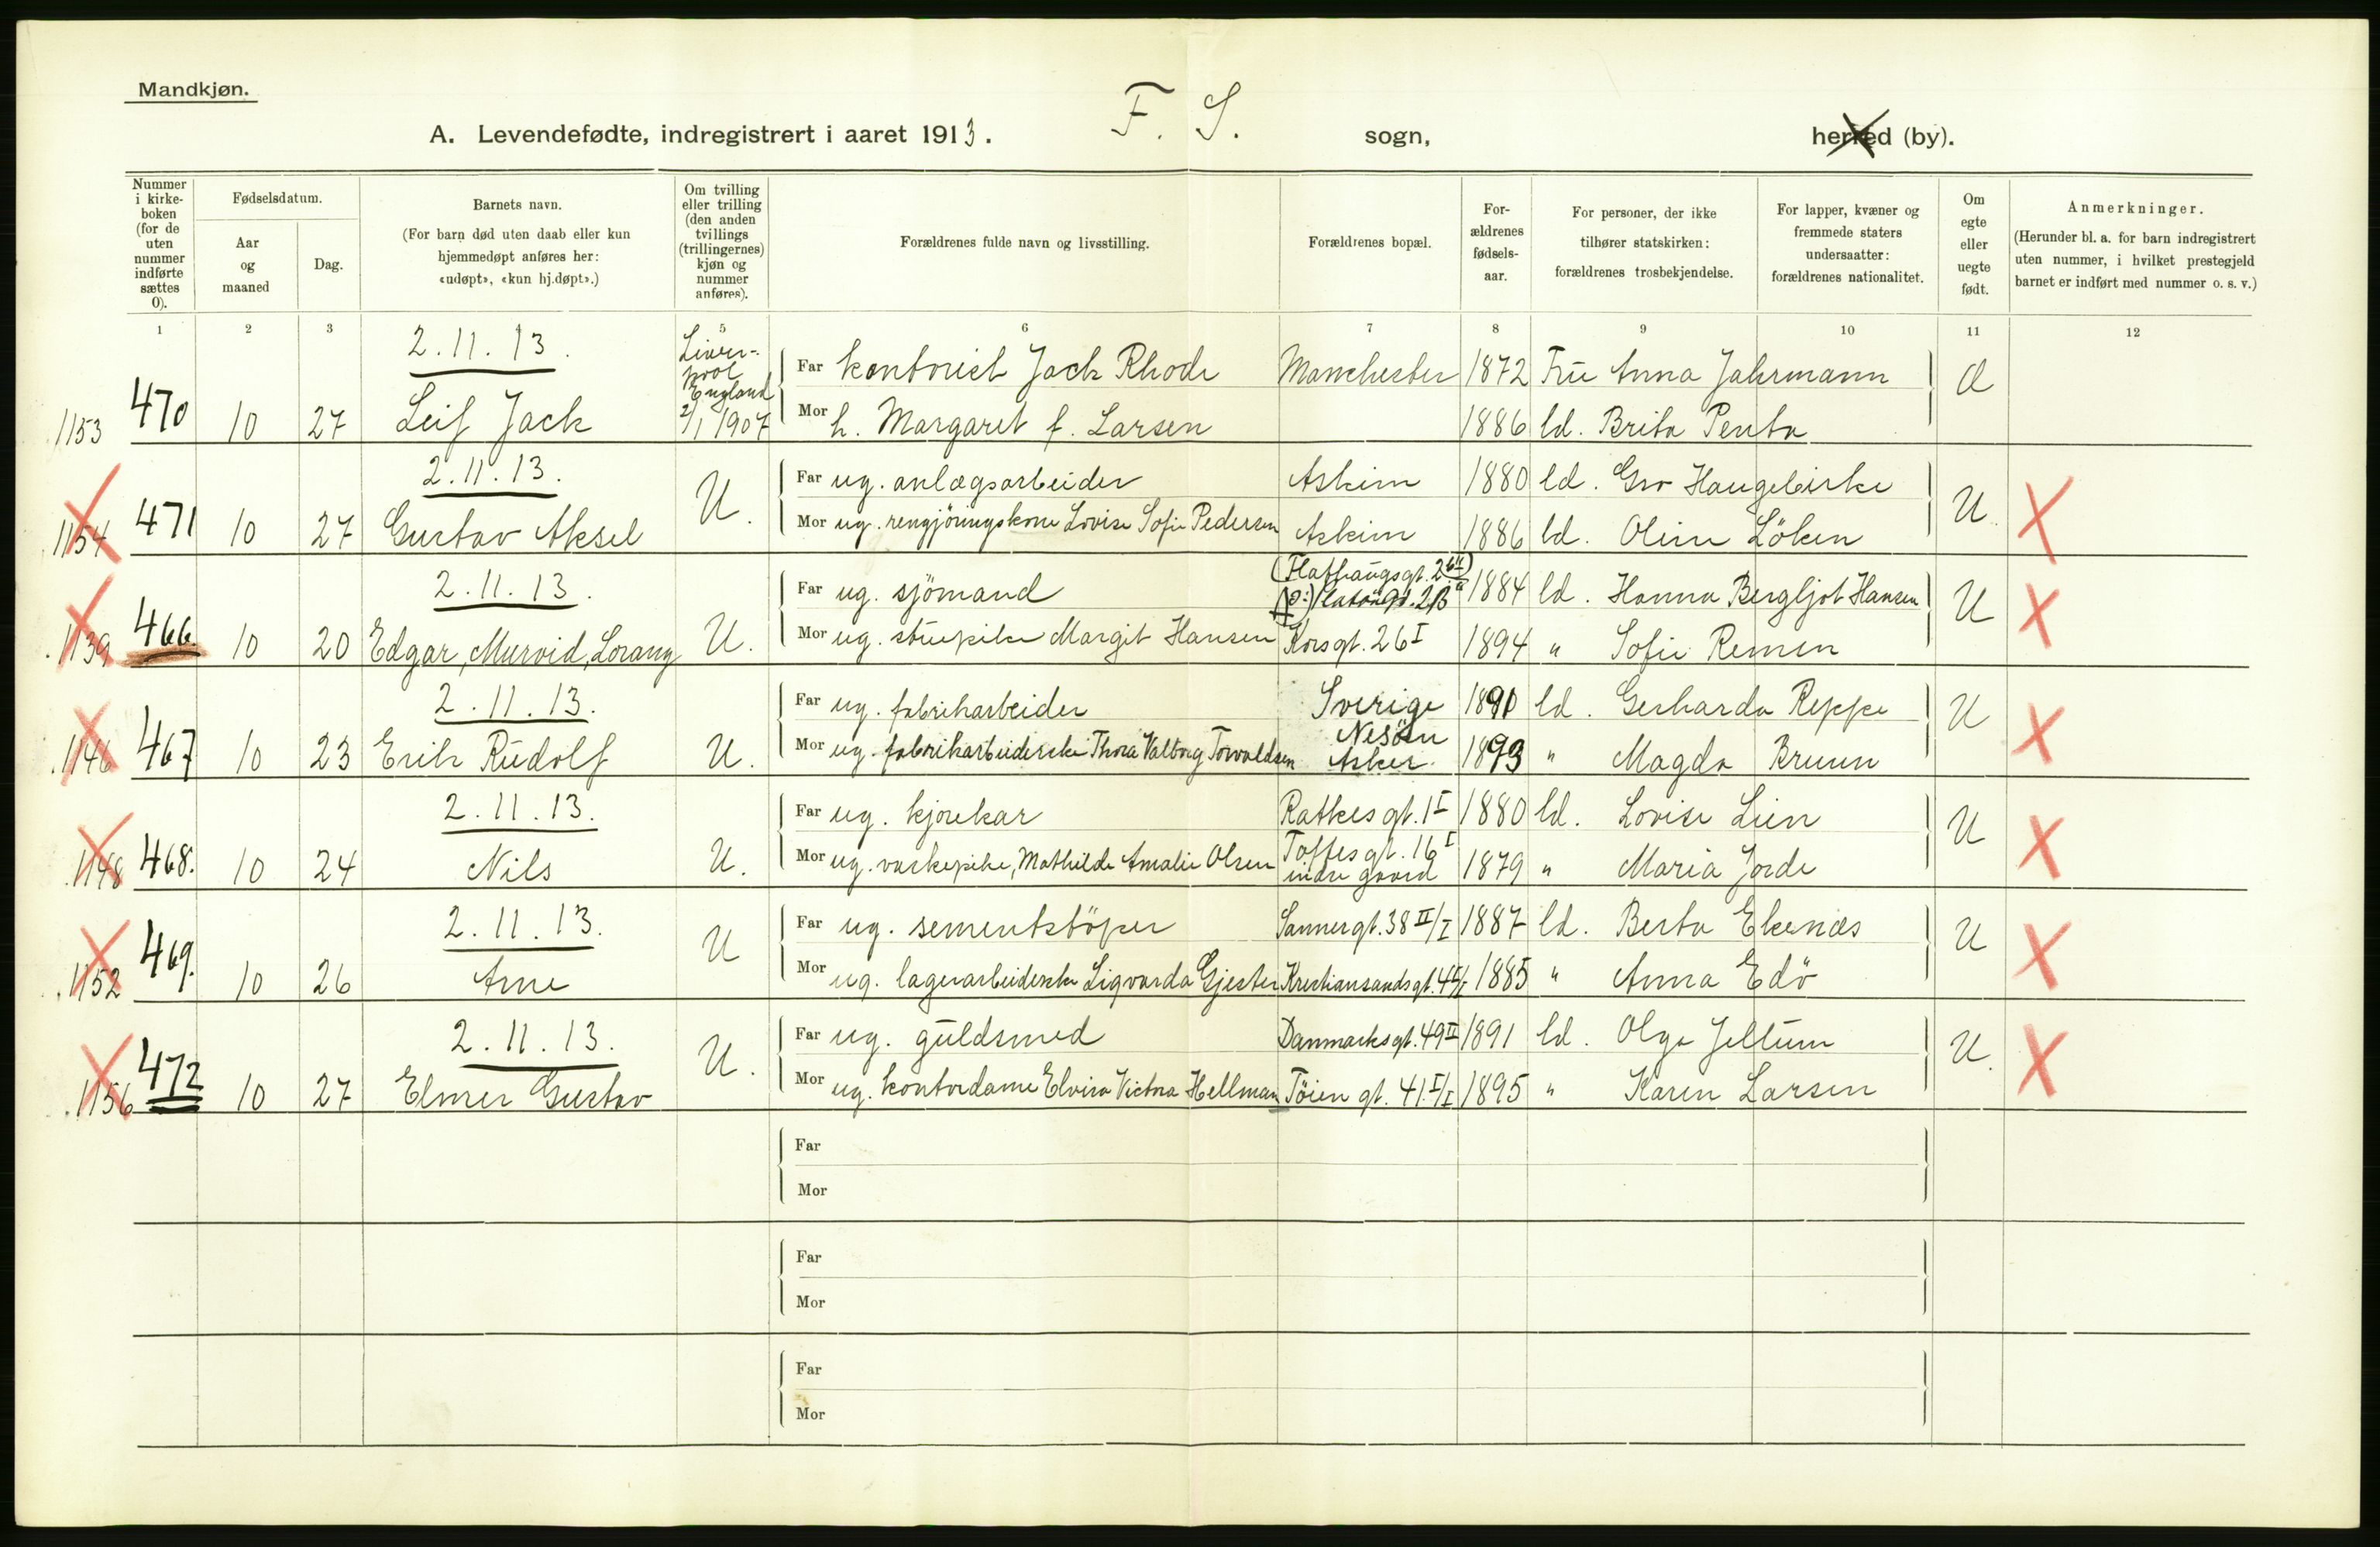 Mandkjøn.
A. Levendefødte, indregistrert i aaret 1913. F. S. sogn, herred (by).
Nummer i kirke-boken (for de uten nummer indførte sættes 0).
Fødselsdatum.
Aar og maaned
Dag.
Barnets navn.
(For barn død uten daab eller kun hjemmedøpt anføres her: «udøpt», «kun hj.døpt».)
Om tvilling eller trilling (den anden tvillings (trillingernes) kjøn og nummer anføres).
Forældrenes fulde navn og livsstilling.
Forældrenes bopæl.
For-ældrenes fødsels-aar.
For personer, der ikke tilhører statskirken: forældrenes trosbekjendelse.
For lapper, kvæner og fremmede staters undersaatter: forældrenes nationalitet.
Om egte eller uegte født.
Anmerkninger.
(Herunder bl. a. for barn indregistrert uten nummer, i hvilket prestegjeld barnet er indført med nummer o. s. v.)
1 2 3 5 6 7 8 9 10 11 12
2.11.13. Liver-pool England 2/1 1907
Far kontorist Jack Rhode Manchester 1872 Fru Anna Jahrmann
1153 470 10 27 Leif Jack Mor h. Margaret f. Larsen 1886 ld. Brita Penta
2.11.13. U.
Far ug. anlægsarbeider Askim 1880 ld. Gro Haugebirke U.
1154 471 10 27 Gustav Aksel Mor ug. rengjöringskone Lovise Sofie Pedersen Askim 1886 ld. Oline Löken
2.11.13.
Far ug. sjömand 1884 ld. Hanna Bergljot Hansen U
1139 466. 10 20 Edgar, Murvid, Lorang U. Mor ug. stuepike Margit Hansen Korsgt. 26 I 1894 " Sofie Remen
2.11.13.
Far ug. fabrikarbeider Sverige 1890 ld. Gerharda Reppe U
1146 467 10 23 Erik Rudolf U. Mor ug. fabrikarbeiderske Thora Valborg Torvaldsen Nesöen Asker. 1893 " Magda Bruun
2.11.13.
Far ug. kjörekar Ratkes gt. 1 I 1880 ld. Lovise Lien U
1148 468. 10 24 Nils U. Mor ug. vaskepike, Mathilde Amalie Olsen Toftes gt. 16 I indre gaard 1879 " Maria Jorde
2.11.13. U
Far ug. sementstöper Sannergt. 38 II/I 1887 ld. Berta Ekenæs U
1152 469. 10 26 Arne Mor ug. lagerarbeiderske Sigvarda Gjester Kristiansandsgt. 1885 " Anna Edö
2.11.13. U.
Far ug. guldsmed Danmarksgt. 49 II 1891 ld. Olga Jeltum U.
1156 472 10 27 Elmer Gustav Mor ug. kontordame Elvira Victoria Hellman Töien gt. 41 I/I 1895 " Karen Larsen
Far
Mor
Far
Mor
Far
Mor